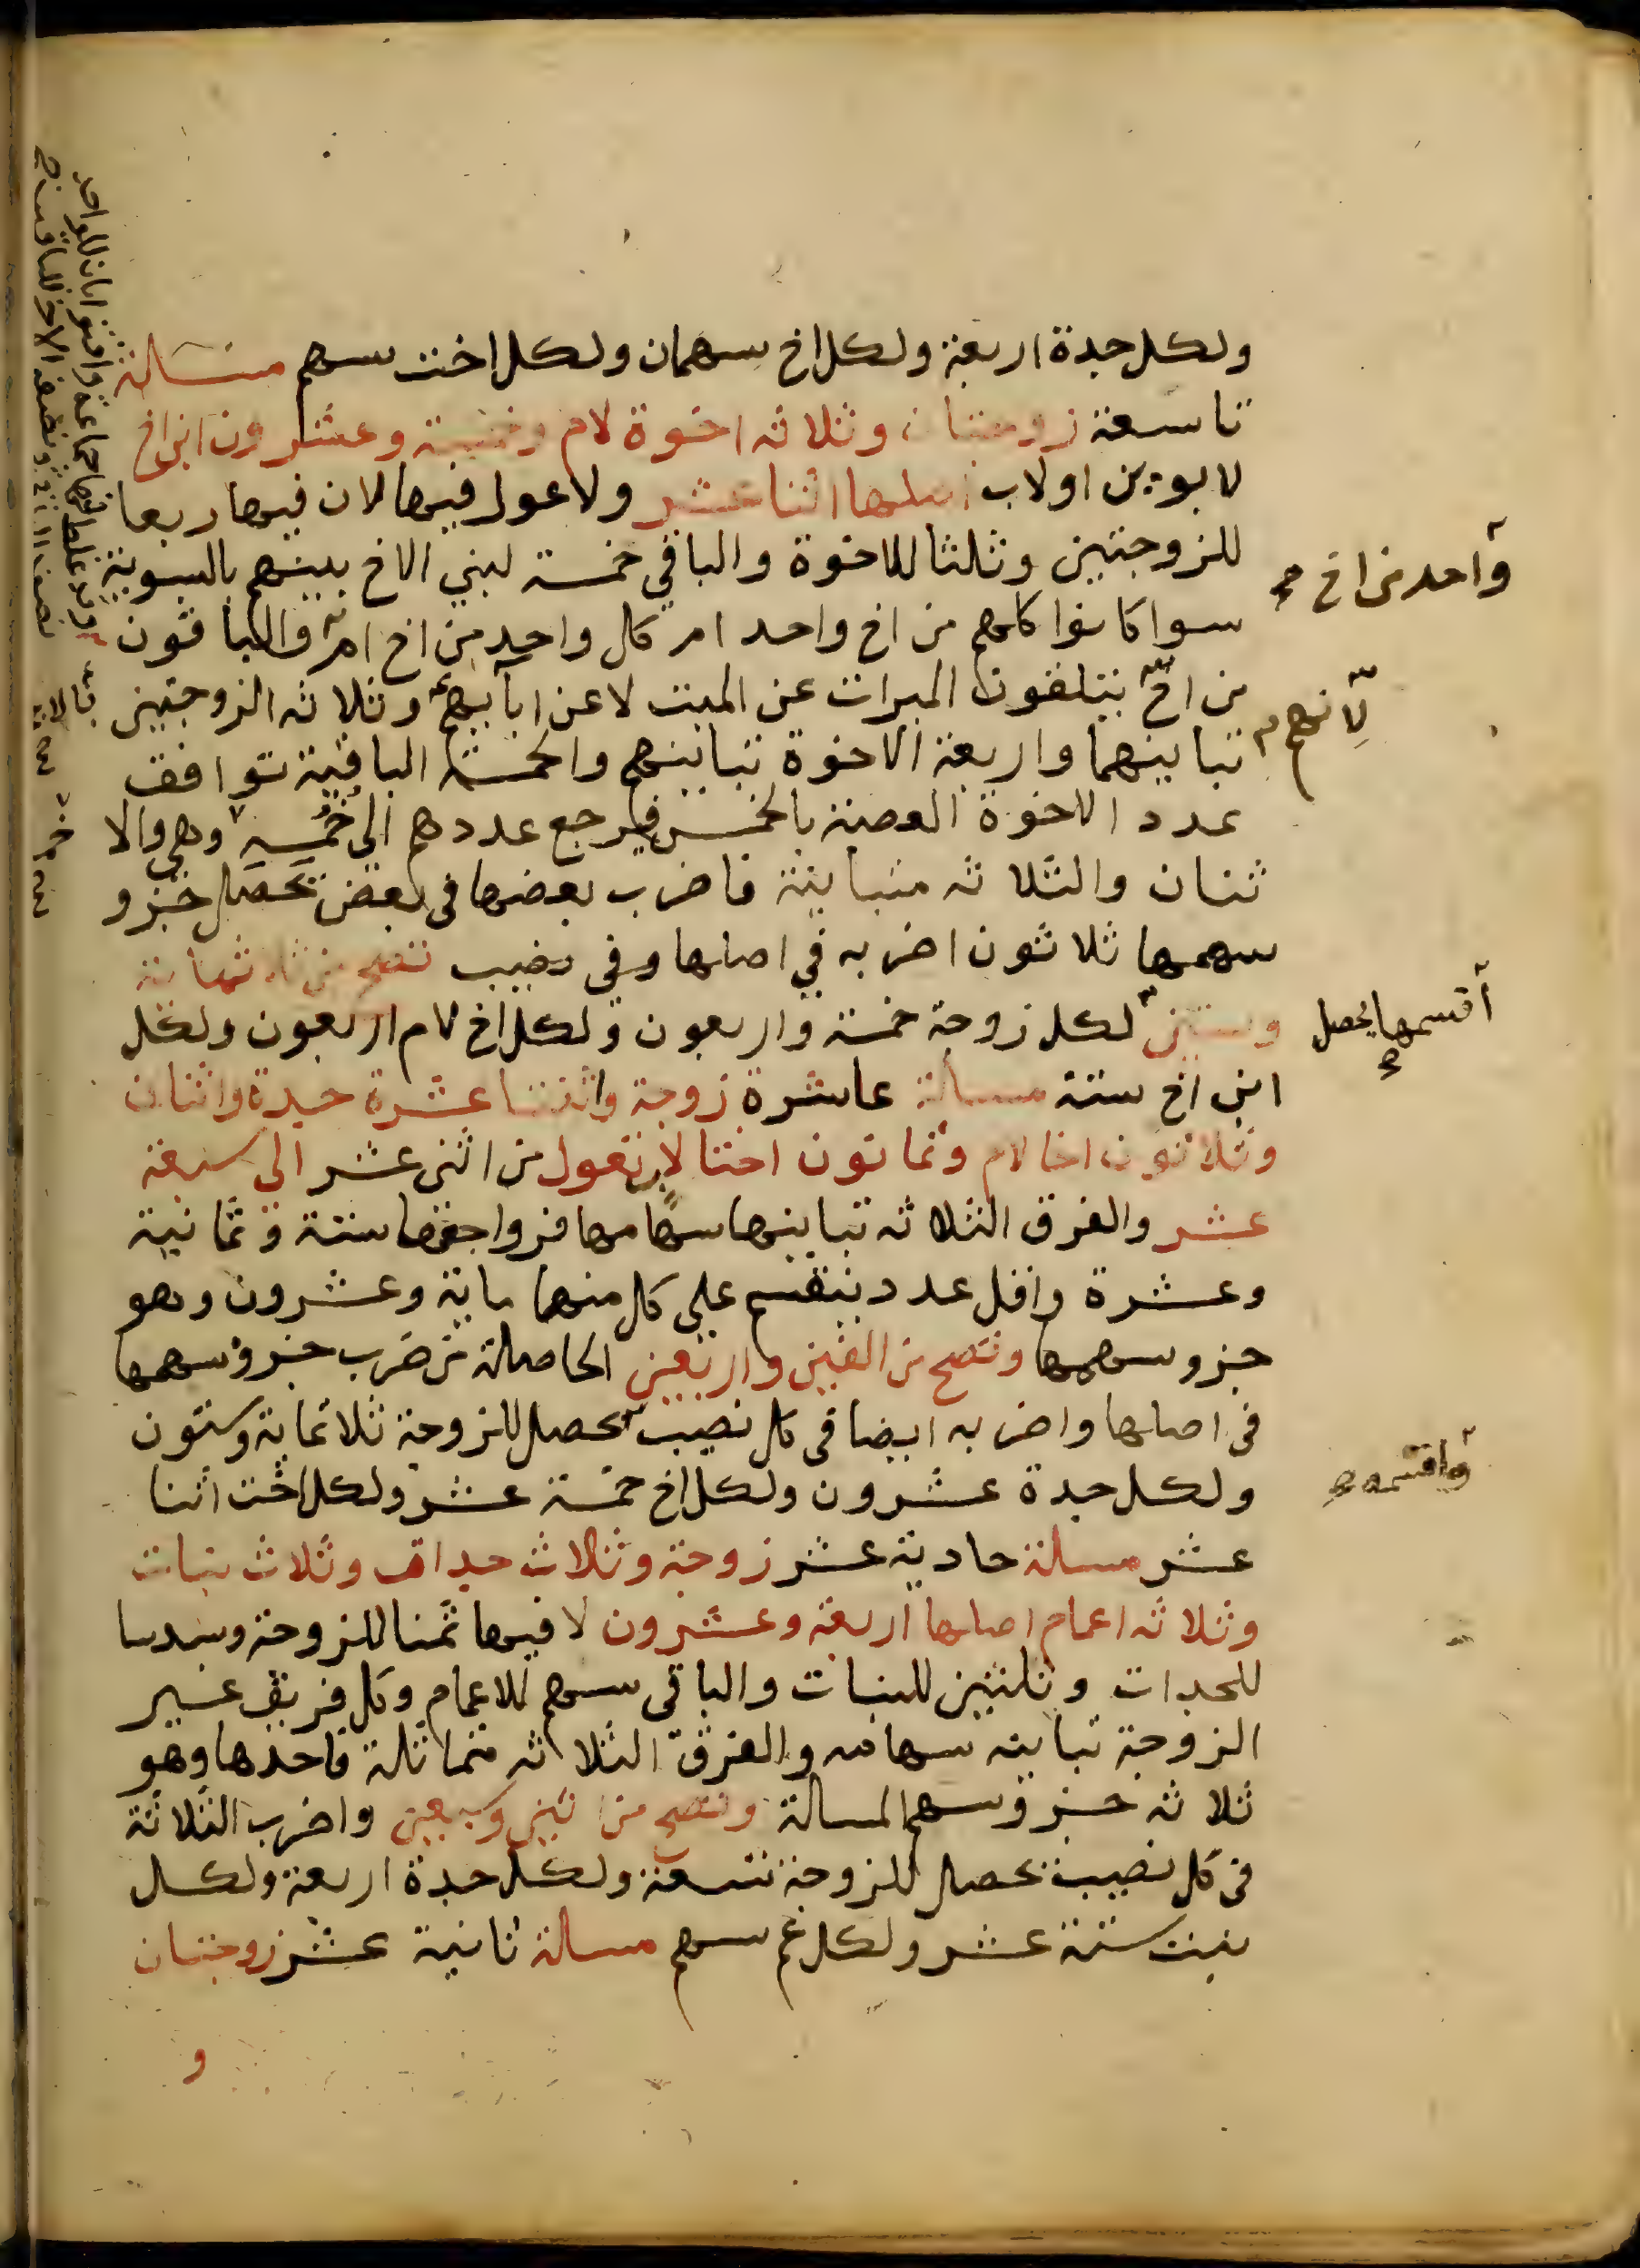 ولكل جدة اربعة ولكل اخ سهمان ولكل اخت سهم مسالة
تاسعة زوجتان وثلاثة اخوة لام وخمسة وعشرون ابن اخ
لابوين اولاب اصلها اثنا عشر ولا عول فيها لان فيها ربعا
للزوجتين وثلثا للاخوة والباقي خمسة لبني الاخ بينهم بالسوية
سوا كانوا كلهم من اخ واحد ام كل واحد من اخ ام والباقون
من اخ يتلقون الميراث عن الميت لا عن ابآيهم وثلاثة الزوجتين
تباينهما واربعة الاخوة تباينهم والخمسة الباقية توافق
عدد الاخوة العصبة بالخمس فيرجع عددهم الى خمسه وهي والا
ثنان والثلاثة متباينة فاضرب بعضها في بعض يحصل جزو
سهمها ثلاثون اضربه في اصلها وفي نصيب تصح من ثلاثماية
وستين لكل زوجة خمسة واربعون ولكل اخ لام اربعون ولكل
ابن اخ ستة مسالة عاشرة زوجة واثنتا عشرة جدة واثنان
وثلاثون اخا لام وثمانون اختا لاب تعول من اثني عشر الى سبعة
عشر والفرق الثلاثة تباينها سهامها فرواجعها ستة وثمانية
وعشرة واقل عدد ينقسم على كل منها ماية وعشرون وهو
جزو سهمها وتصح من الفين واربعين الحاصلة من ضرب جزو سهمها
في اصلها واضربه ايضا في كل نصيب يحصل للزوجة ثلاثماية وستون
ولكل جدة عشرون ولكل اخ خمسة عشر ولكل اخت اثنا
عشر مسلة حادية عشر زوجة وثلاث جدات وثلاث بنات
وثلاثة اعمام اصلها اربعة وعشرون لا فيها ثمنا للزوجة وسدسا
للجدات وثلثين للبنات والباقي سهم للاعمام وكل فريق غير
الزوجة تباينه سهامه والفرق الثلاثة متماثلة فاحدها وهو
ثلاثة جزو سهم المسالة وتصح من اثنين وسبعين واضرب الثلاثة
في كل نصيب يحصل للزوجة تسعة ولكل جدة اربعة ولكل
بنت ستة عشر ولكل عم سهم مسالة ثانية عشر زوجتان
و
واحد من اخ
لانهم
اقسمها يحصل
واقسمه